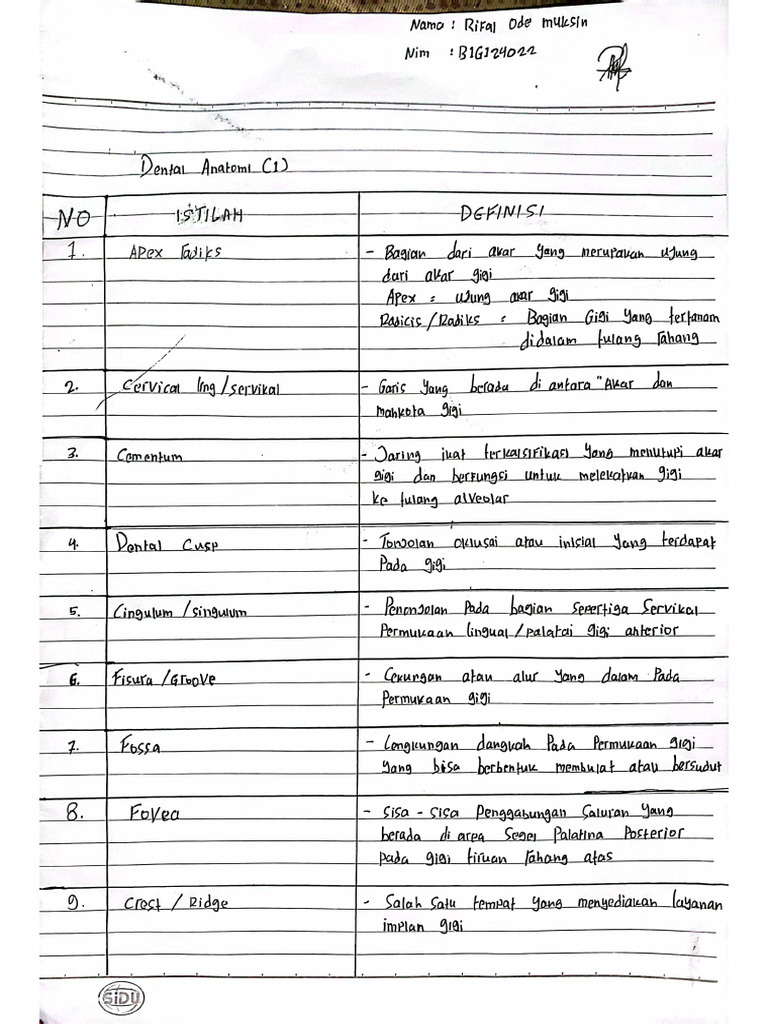 Nama : Rifal Ode muksin
Nim : B1G124022
Dental Anatomi (1)
NO ISTILAH DEFINISI
1. Apex Radiks - Bagian dari akar yang merupakan ujung
dari akar gigi
Apex = ujung akar gigi
Radicis/Radiks = Bagian Gigi yang tertanam
didalam tulang rahang
2. Cervical ling/servikal - Garis yang berada di antara "Akar dan
mahkota gigi
3. Cementum - Jaring ikat terkalsifikasi yang menutupi akar
gigi dan berfungsi untuk melekatkan gigi
ke tulang alveolar
4. Dental Cusp - Tonjolan oklusal atau inisial yang terdapat
Pada gigi
5. Cingulum /singulum - Penonjolan Pada bagian sepertiga Servikal
Permukaan lingual/palatal gigi anterior
6. Fisura /Groove - Cekungan atau alur yang dalam Pada
Permukaan gigi
7. Fossa - Lengkungan dangkah Pada Permukaan gigi
yang bisa berbentuk membulat atau bersudut
8. Fovea - Sisa - sisa Penggabungan Saluran yang
berada di area Segel Palatina Posterior
pada gigi tiruan rahang atas
9. Crest / Ridge - Salah satu tempat yang menyediakan layanan
implan gigi
SiDU